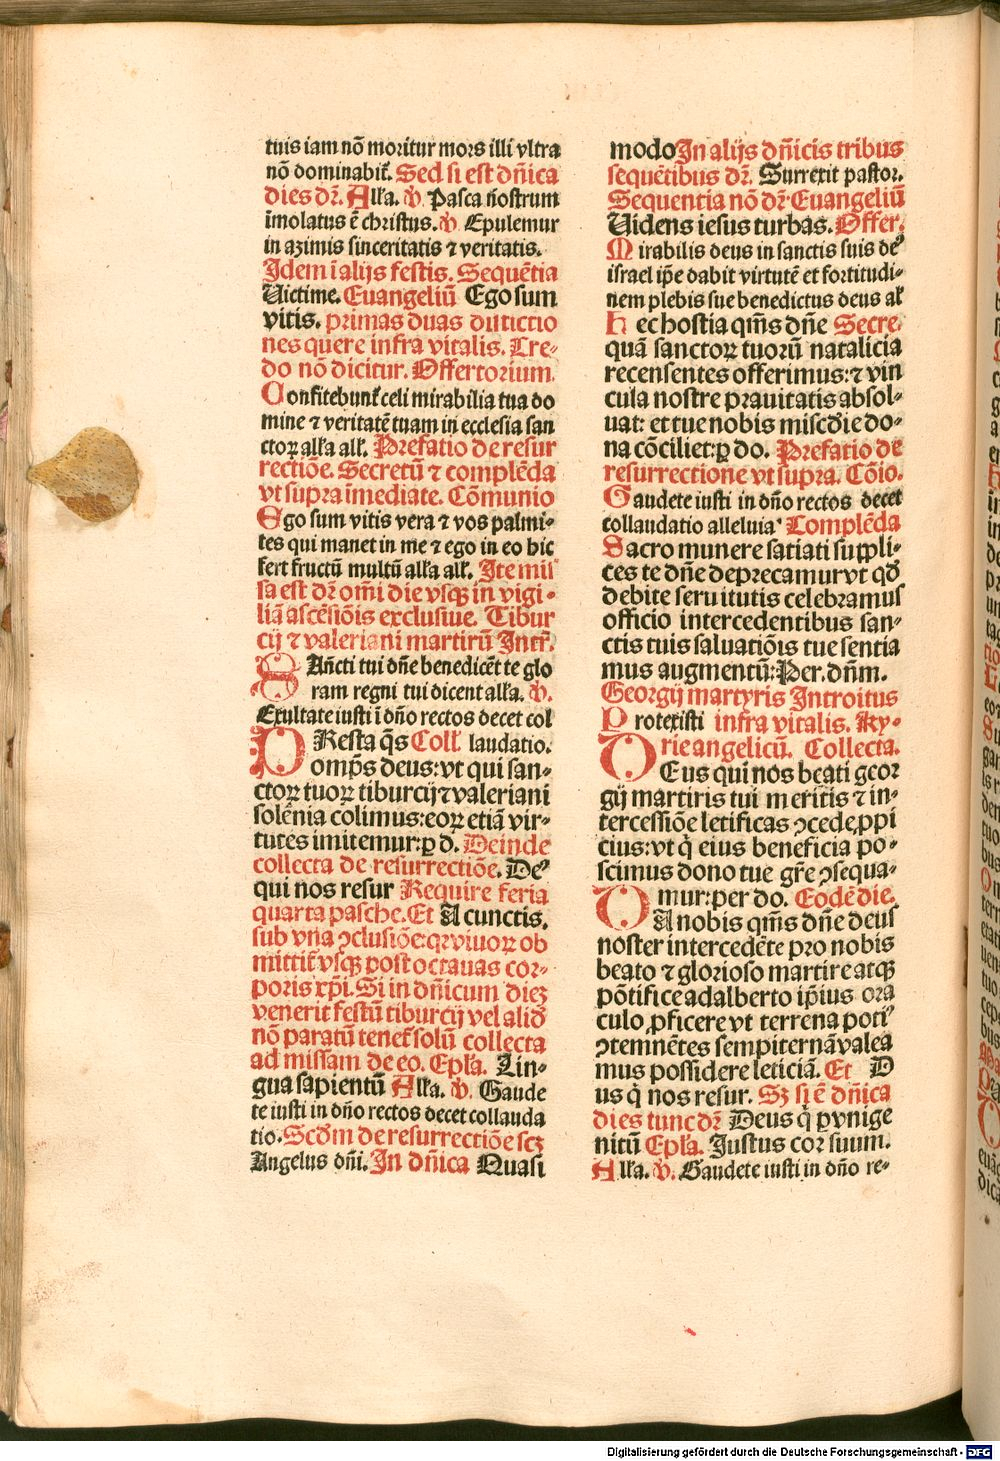 tuis iam nō moritur mors illi vltra
nō dominabit̄. Sed si est dn̄ica
dies dr̄. Alľa. ℣. Pasca n̄ostrum
īmolatus ē christus. ℣. Epulemur
in azimis sinceritatis ⁊ veritatis.
Idem ī alijs festis. Sequētia
Victime. Euangeliū Ego sum
vitis. primas duas dutictio
nes quere infra vitalis. Cre-
do nō dicitur. Offertorium.
Confitebunt̄ celi mirabilia tua do
mine ⁊ veritatē tuam in ecclesia san
ctoꝝ alľa alľ. Prefatio de resur
rectiōe. Secretū ⁊ complēda
vt supra īmediate. Cōmunio
Ego sum vitis vera ⁊ vos palmi-
tes qui manet in me ⁊ ego in eo hic
fert fructū multū alľa alľ. Ite mis
sa est dr̄ om̄i die vsqꝫ in vigi-
liā ascēsiōis exclusiue. Tibur
cij ⁊ valeriani martirū Intr̄.
SAn̄cti tui dn̄e benedicēt te glo
ram regni tui dicent alľa. ℣.
Exultate iusti ī dn̄o rectos decet col
PResta q̄s Coll̄. laudatio.
omp̄s deus: vt qui san-
ctoꝝ tuoꝝ tiburcij ⁊ valeriani
solēnia colimus: eoꝝ etiā vir-
tutes imitemur: ꝑ d. Deinde
collecta de resurrectiōe. De⁹
qui nos resur Require feria
quarta pasche. Et A cunctis.
sub vna ꝯclusiōe: q̄ viuoꝝ ob
mittit̄ vsqꝫ post octauas cor-
poris xp̄i. Si in dn̄icum diez
venerit festū tiburcij vel aliđ
nō paratū tenet̄ solū collecta
ad missam de eo. Epľa. Lin-
gua sapientū Alľa. ℣. Gaude
te iusti in dn̄o rectos decet collauda
tio. Scđm de resurrectiōe scꝫ
Angelus dn̄i. In dn̄ica Quasi
modo In alijs dn̄icis tribus
sequētibus dr̄. Surrexit pastor.
Sequentia nō dr̄ Euangeliū
Videns iesus turbas. Offer.
Mirabilis deus in sanctis suis de⁹
israel ip̄e dabit virtutē et fortitudi-
nem plebis sue benedictus deus al̄
Hec hostia qm̄s dn̄e Secre.
quā sanctoꝝ tuorū natalicia
recensentes offerimus: ⁊ vin
cula nostre prauitatis absol-
uat: et tue nobis misc̄die do-
na cōciliet: ꝑ do. Prefatio de
resurrectione vt supra. Cōio.
Gaudete iusti in dn̄o rectos decet
collaudatio alleluia. Complēda
Sacro munere satiati suppli-
ces te dn̄e deprecamur vt qđ
debite seruitutis celebramus
officio intercedentibus san-
ctis tuis saluatiōis tue sentia
mus augmentū: Per. dn̄m.
Georgij martyris Introitus
Protexisti infra vitalis. Ky-
rie angelicū. Collecta.
DEus qui nos beati geor
gij martiris tui meritis ⁊ in-
tercessiōe letificas ꝯcede ꝓpi
cius: vt q̄ eius beneficia po-
scimus dono tue gr̄e ꝯsequa-
mur: per do. Eodē die.
DA nobis qm̄s dn̄e deus
noster intercedēte pro nobis
beato ⁊ glorioso martire atqꝫ
pōtifice adalberto ip̄ius ora
culo ꝓficere vt terrena poti⁹
ꝯtemnētes sempiternā valea
mus possidere leticiā. Et D
us q̄ nos resur. Sꝫ si ē dn̄ica
dies tunc dr̄ Deus q̄ ꝑ vnige
nitū Epľa. Justus cor suum.
Alľa. ℣. Gaudete iusti in dn̄o re-
Digitalisierung gefördert durch die Deutsche Forschungsgemeinschaft - DFG